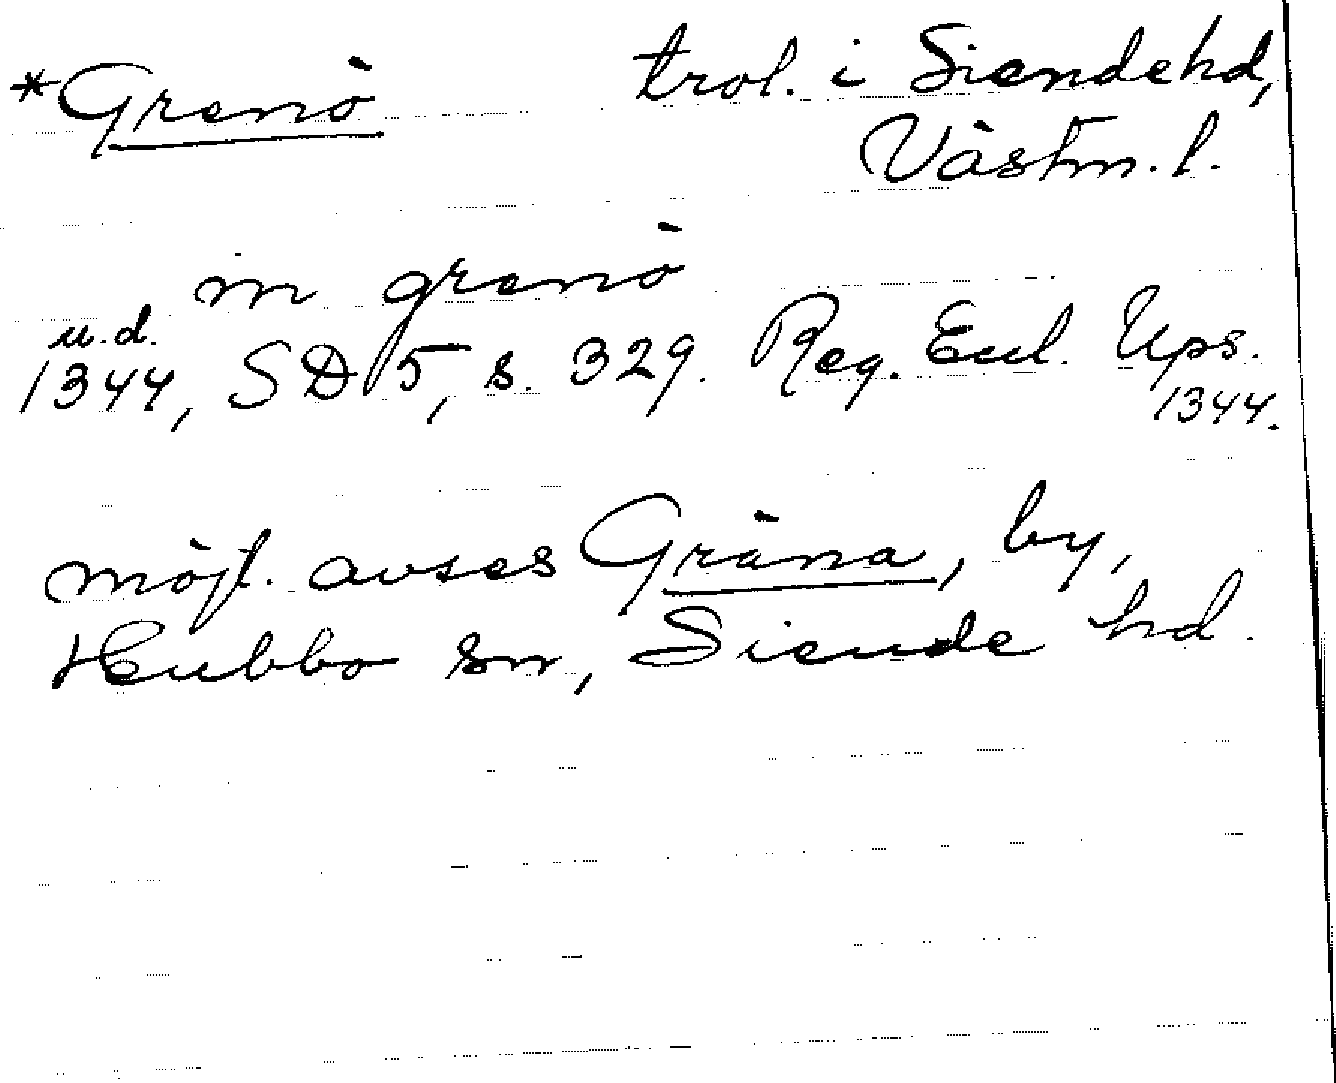 *Grenö trol. i Siendehd,
Västm. l.
in grenö
u.d.
1344, SD 5, s. 329. Reg. Eccl. Ups.
1344.
möjl. avses Gräna, by,
Hubbo sn, Siende hd.